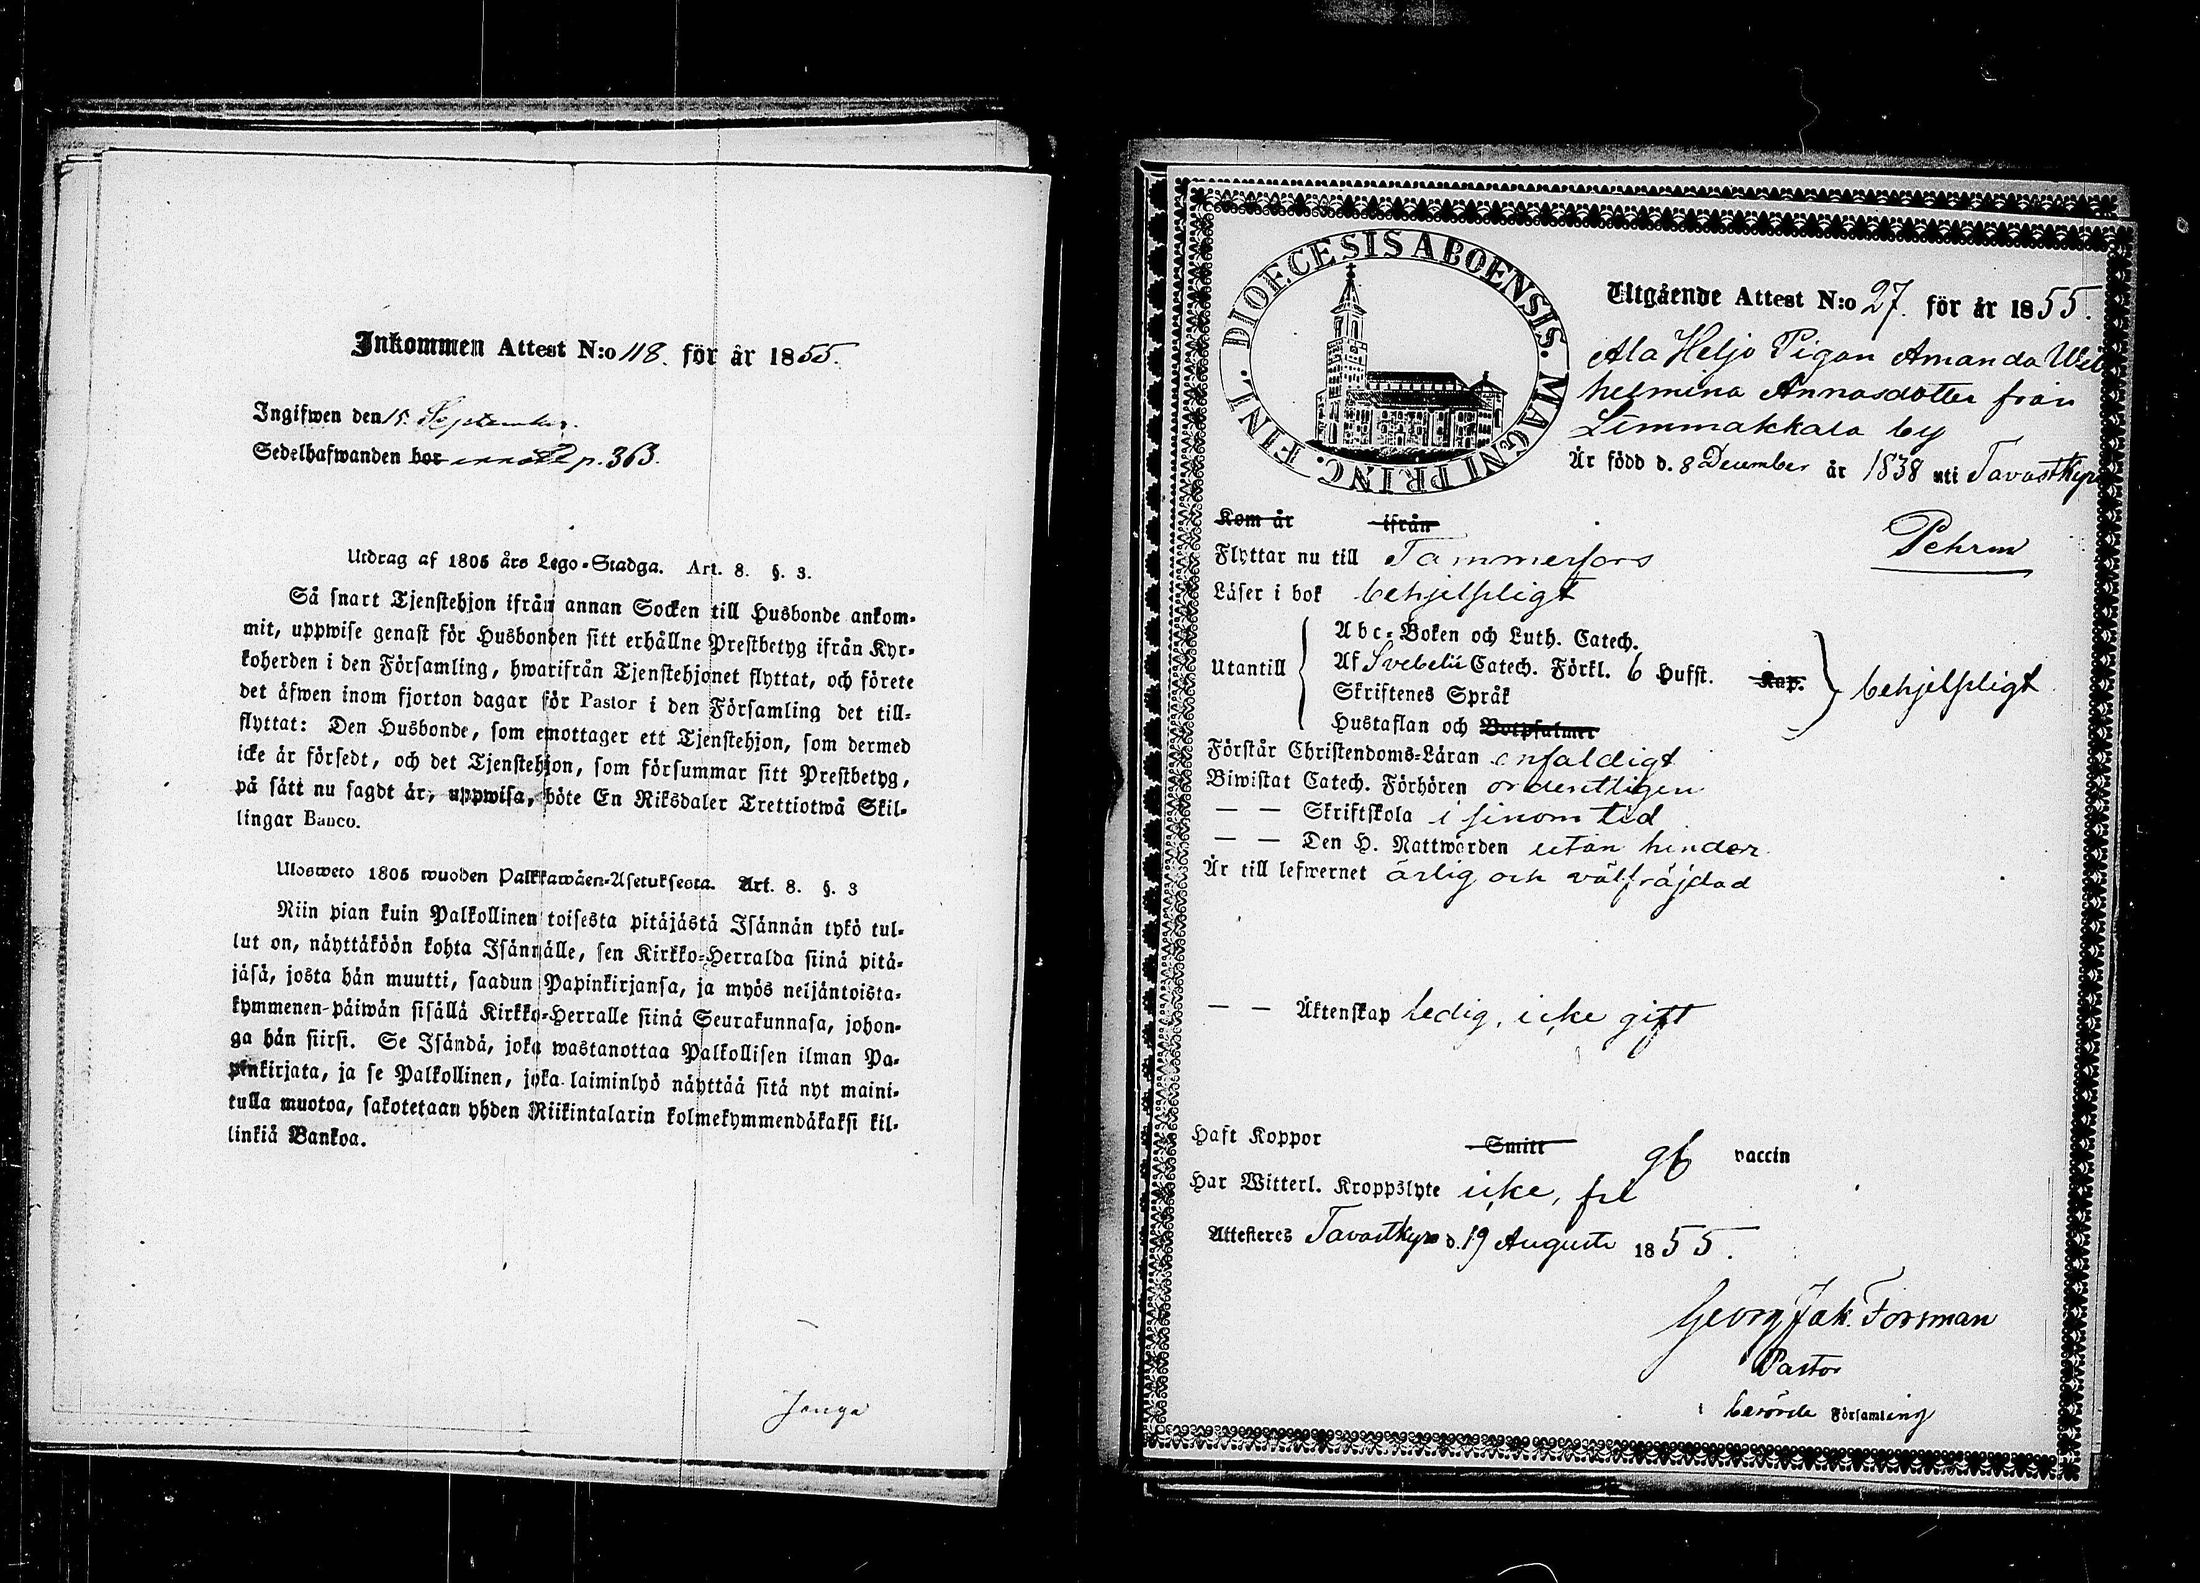 Inkommen Attest N:o 118. för år 1855.
Ingifwen den 15. September.
Sedelhafwanden bor p. 363.
Utdrag af 1805 års Lego-Stadga. Art. 8. §. 3.
Så snart Tjenstehjon ifrån annan Socken till Husbonde ankom-
mit, uppwise genast för Husbonden sitt erhållne Prestbetyg ifrån Kyr-
koherden i den Församling, hwarifrån Tjenstehjonet flyttat, och förete
det äfwen inom fjorton dagar för Pastor i den Församling det till-
flyttat: Den Husbonde, som emottager ett Tjenstehjon, som dermed
icke är försedt, och det Tjenstehjon, som försummar sitt Prestbetyg,
på sätt nu sagdt är, uppwisa, böte En Riksdaler Trettiotwå Skil-
lingar Banco.
Ulosweto 1805 wuoden Palkkawäen-Asetuksesta. Art. 8. §. 3
Niin pian kuin Palkollinen toisesta pitäjästä Isännän tykö tul-
lut on, näyttäköön kohta Isännälle, sen Kirkko-Herralda siinä pitä-
jäsä, josta hän muutti, saadun Papinkirjansa, ja myös neljäntoista-
kymmenen-päiwän sisällä Kirkko-Herralle siinä Seurakunnasa, johon-
ga hän siirsi. Se Isändä, joka wastanottaa Palkollisen ilman Pa-
pinkirjata, ja se Palkollinen, joka laiminlyö näyttää sitä nyt maini-
tulla muotoa, sakotetaan yhden Riikintalarin kolmekymmendäkaksi kil-
linkiä Bankoa.
DIOECESIS ABOENSIS. MAGNI PRINC. FINL.
Utgående Attest N:o 27. för år 1855.
Ala Heljo Pigan Amanda Wil
helmina Annasdotter från
Limmakkala by
Är född d. 8 December år 1838 uti Tavastkyro
Kom år ifrån
Pehrm
Flyttar nu till Tammerfors
Läser i bok behjelpligt
Utantill
Abc-Boken och Luth. Catech.
Af Svebelii Catech. Förkl. 6 Hufst. Kap.
Skriftenes Språk
Hustaflan och Botpsalmer
behjelpligt
Förstår Christendoms-Läran enfaldigt
Biwistat Catech. Förhören ordentligen
— — Skriftskola i sinom tid
— — Den H. Nattwarden utan hinder
Är till lefwernet ärlig och välfräjdad
— — Äktenskap ledig, icke gift
Haft Koppor Smitt gb vaccin
Har Witterl. Kroppslyte icke, fri
Attesteres Tavastkyro d. 19 Augusti 1855.
Georg Jak. Forsman
Pastor
i berörde Församling